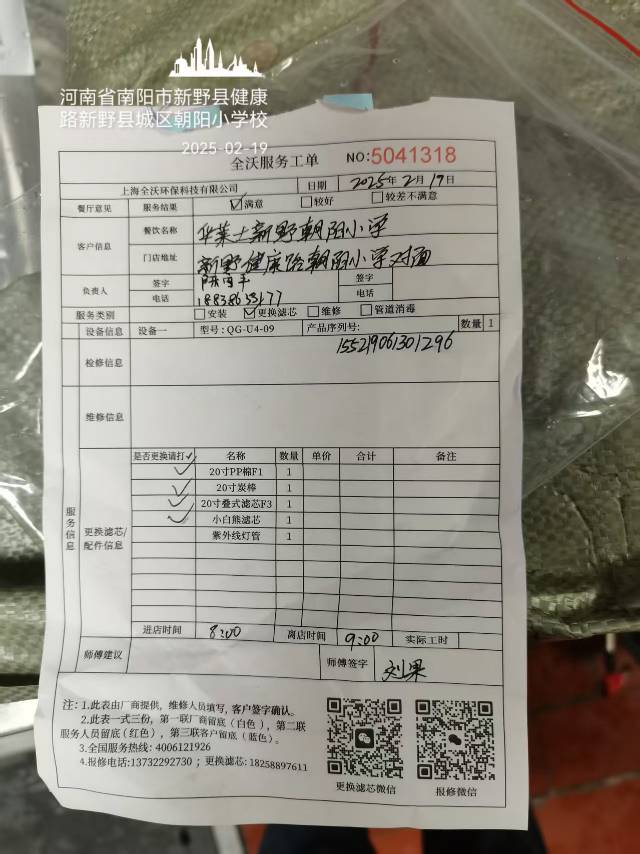 河南省南阳市新野县健康
路新野县城区朝阳小学校
2025-02-19
全沃服务工单 NO:5041318
上海全沃环保科技有限公司 日期 2025年2月19日
餐厅意见 服务结果 ☑满意 □较好 □较差不满意
客户信息 餐饮名称 华莱士新野朝阳小学
门店地址 新野健康路朝阳小学对面
负责人 签字 签字
电话 18838653177 电话
服务类别 □安装 ☑更换滤芯 □维修 □管道消毒
设备信息 设备一 型号:QG-U4-09 产品序列号: 数量 1
155219061301296
检修信息
维修信息
服务信息 更换滤芯/配件信息
是否更换请打✓ 名称 数量 单价 合计 备注
✓ 20寸PP棉F1 1
✓ 20寸炭棒 1
✓ 20寸叠式滤芯F3 1
✓ 小白熊滤芯 1
紫外线灯管 1
进店时间 8:00 离店时间 9:00 实际工时
师傅建议 师傅签字 刘果
注:1.此表由厂商提供,维修人员填写,客户签字确认。
2.此表一式三份,第一联厂商留底(白色),第二联
服务人员留底(红色),第三联客户留底(蓝色)。
3.全国服务热线:4006121926
4.报修电话:13732292730;更换滤芯:18258897611
更换滤芯微信 报修微信